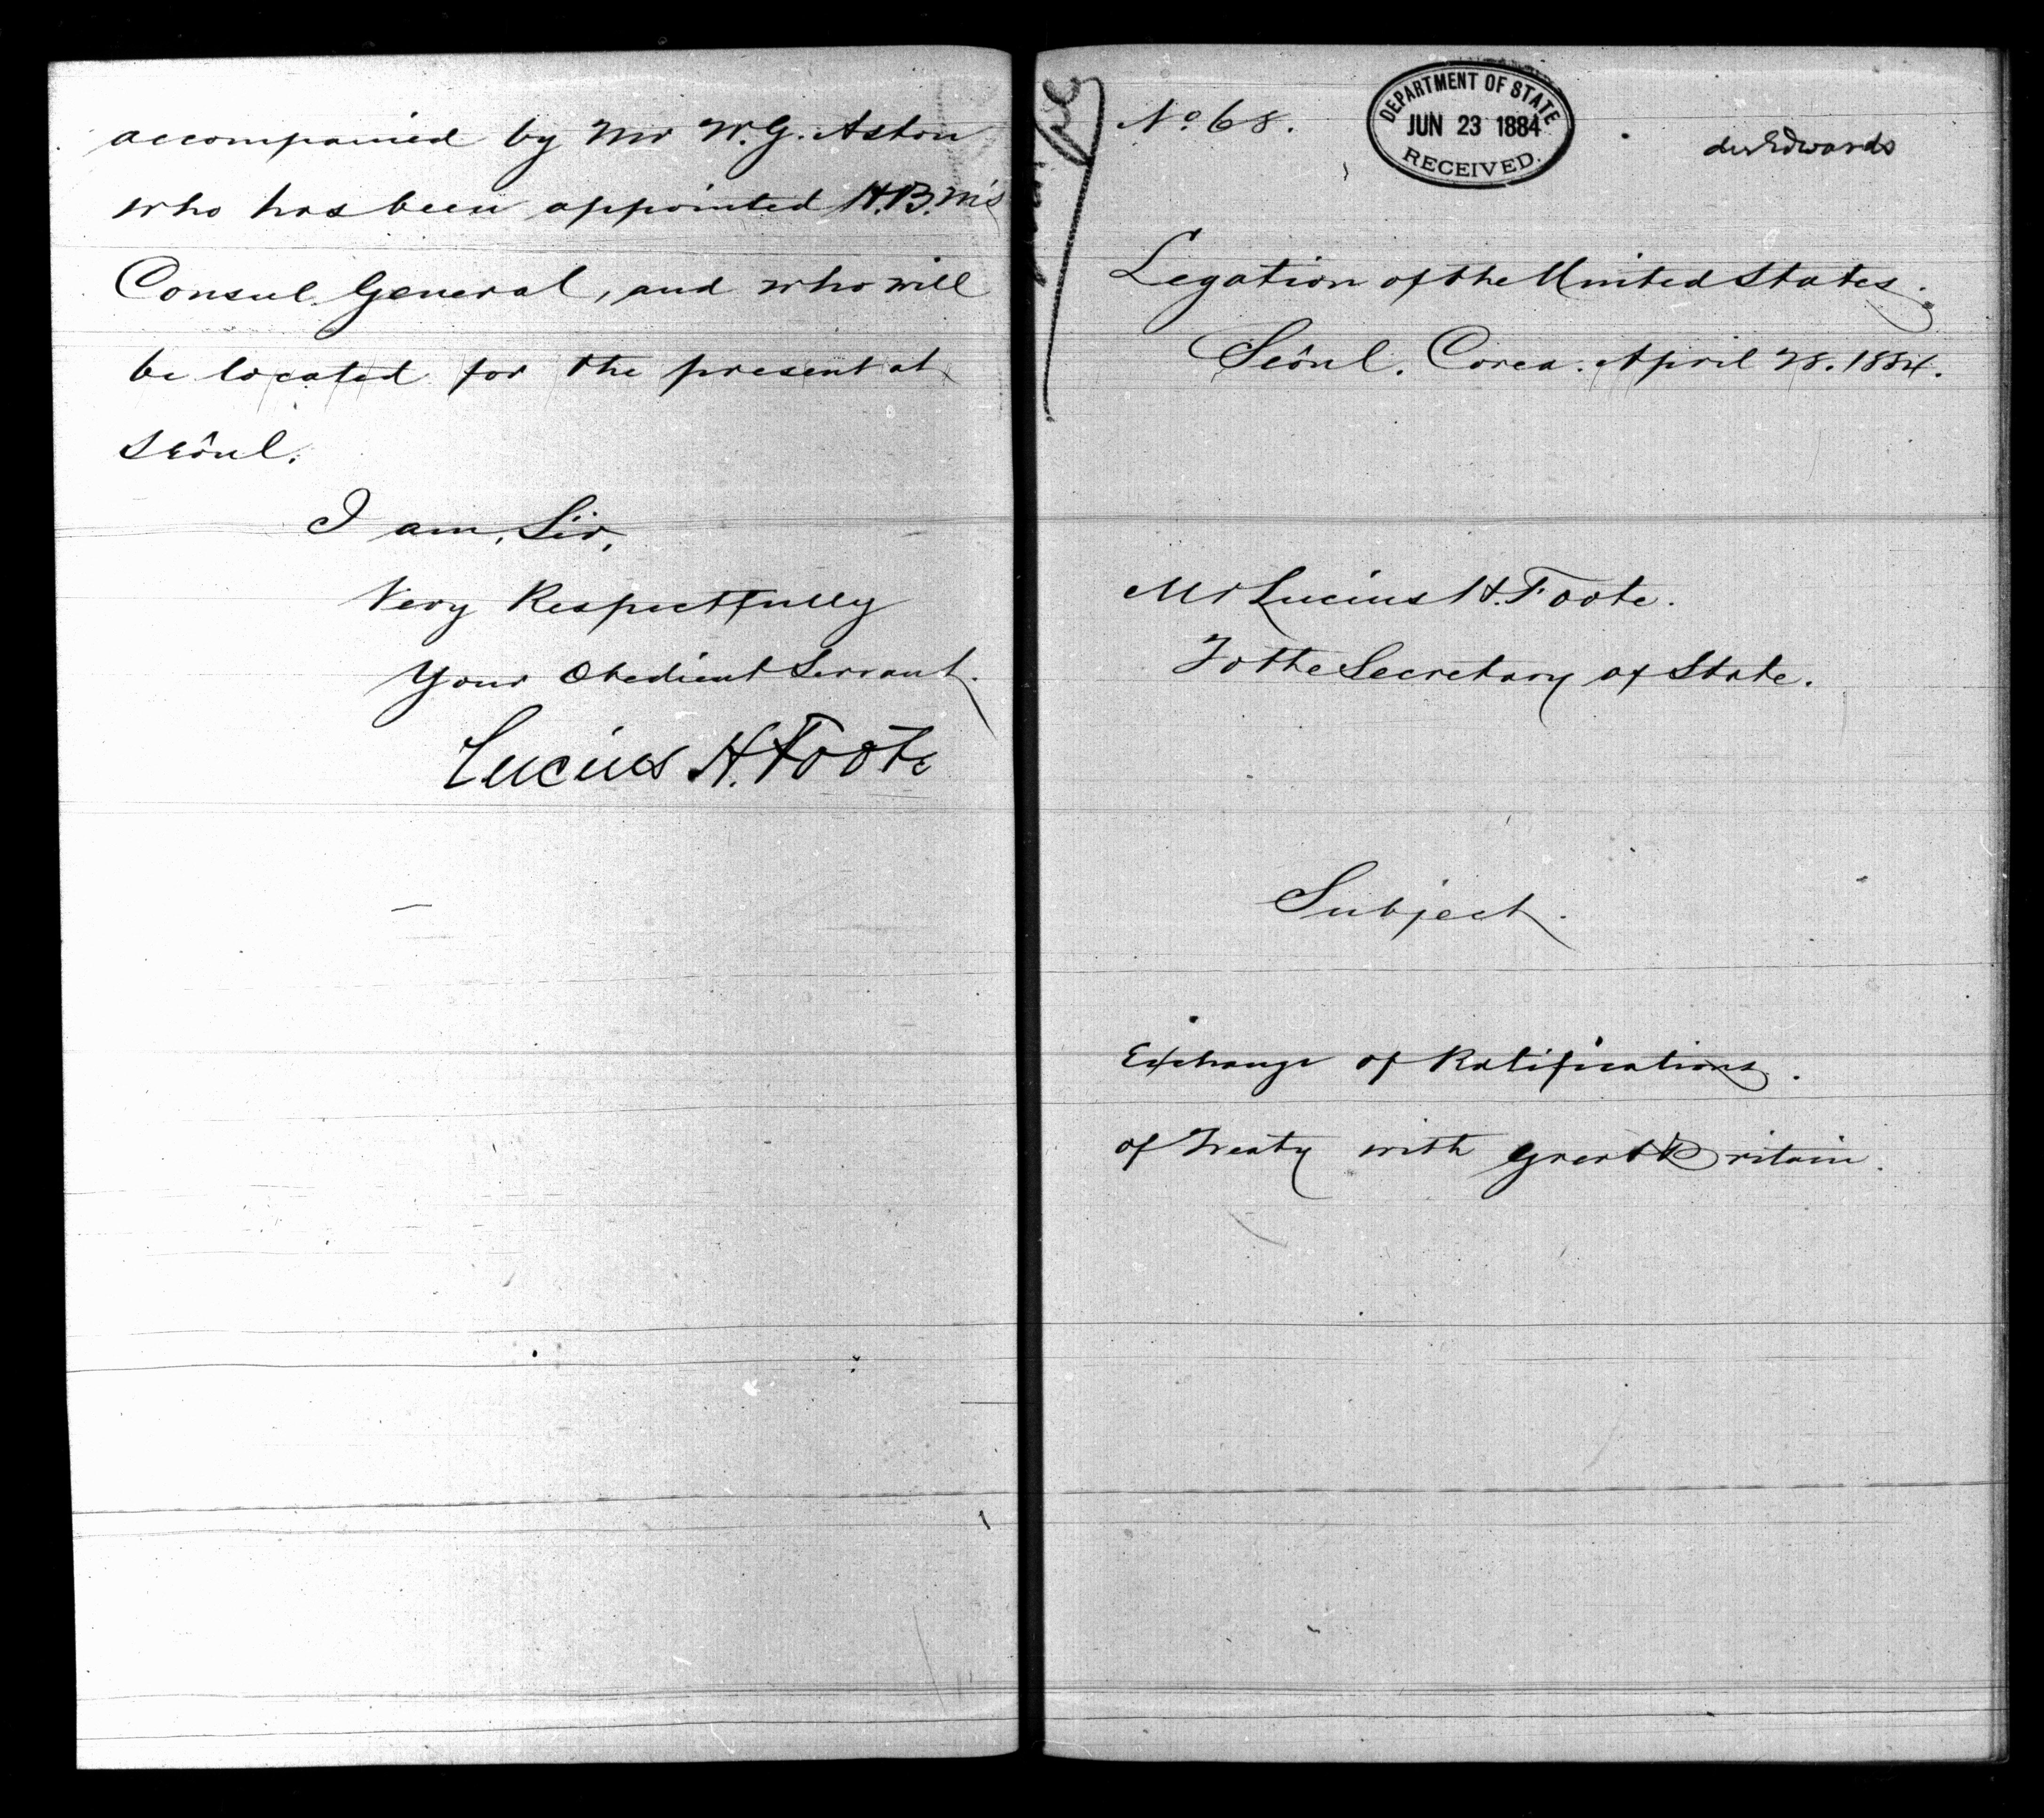 accompanied by Mr W.G. Aston
who has been appointed H.B.M's
Consul General, and who will
be located for the present at
Seôul.
I am, Sir,
Very Respectfully
Your Obedient Servant.
Lucius H. Foote
No 68.
DEPARTMENT OF STATE
JUN 23 1884
RECEIVED.
Edwards
Legation of the United States.
Seôul. Corea. April 28. 1884.
Mr Lucius H. Foote.
To the Secretary of State.
Subject.
Exchange of Ratifications.
of Treaty with Great Britain.